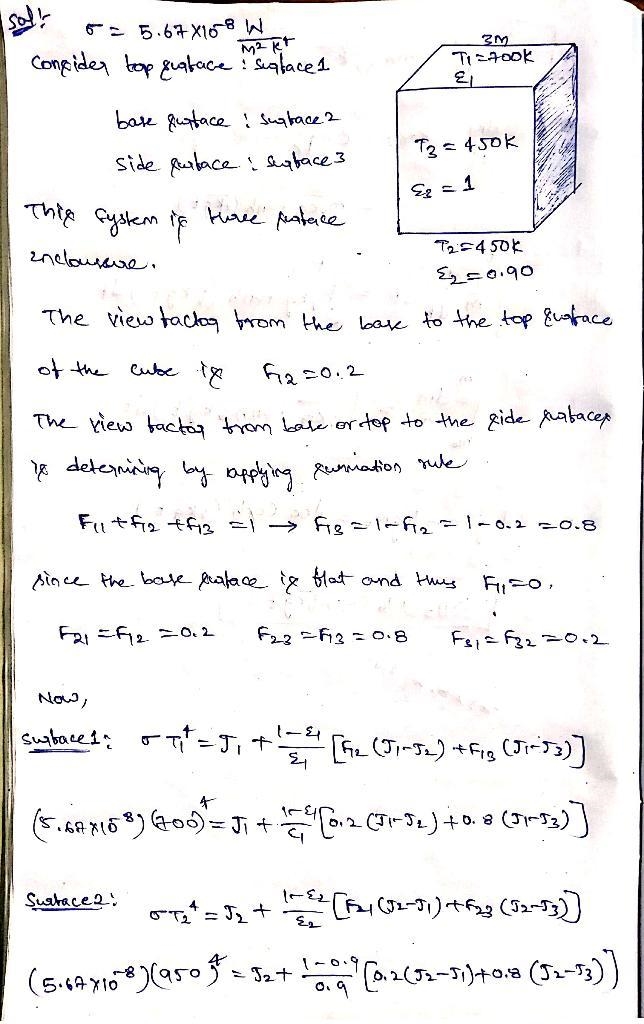 Sol:-
σ = 5.67 X10^-8 W/M² K⁴
Consider top surface : Surface 1
base surface : Surface 2
Side surface : Surface 3
This System is three surface
enclousure.
3M
T₁=700K
ε₁
T₃ = 450K
ε₃ = 1
T₂=450K
ε₂=0.90
The view factor from the base to the top surface
of the cube is F₁₂=0.2
The view factor from base or top to the side surfaces
is determining by applying summation rule
F₁₁ + F₁₂ + F₁₃ = 1 → F₁₃ = 1-F₁₂ = 1-0.2 = 0.8
since the base surface is flat and thus F₁₁=0,
F₂₁ = F₁₂ = 0.2 F₂₃ = F₁₃ = 0.8 F₃₁ = F₃₂ = 0.2
Now,
Surface 1: σT₁⁴ = J₁ + (1-ε₁)/ε₁ [F₁₂ (J₁-J₂) + F₁₃ (J₁-J₃)]
(5.67X10^-8)(700)⁴ = J₁ + (1-ε₁)/ε₁ [0.2 (J₁-J₂) + 0.8 (J₁-J₃)]
Surface 2: σT₂⁴ = J₂ + (1-ε₂)/ε₂ [F₂₁ (J₂-J₁) + F₂₃ (J₂-J₃)]
(5.67X10^-8)(950)⁴ = J₂ + (1-0.9)/0.9 [0.2(J₂-J₁)+0.8 (J₂-J₃)]